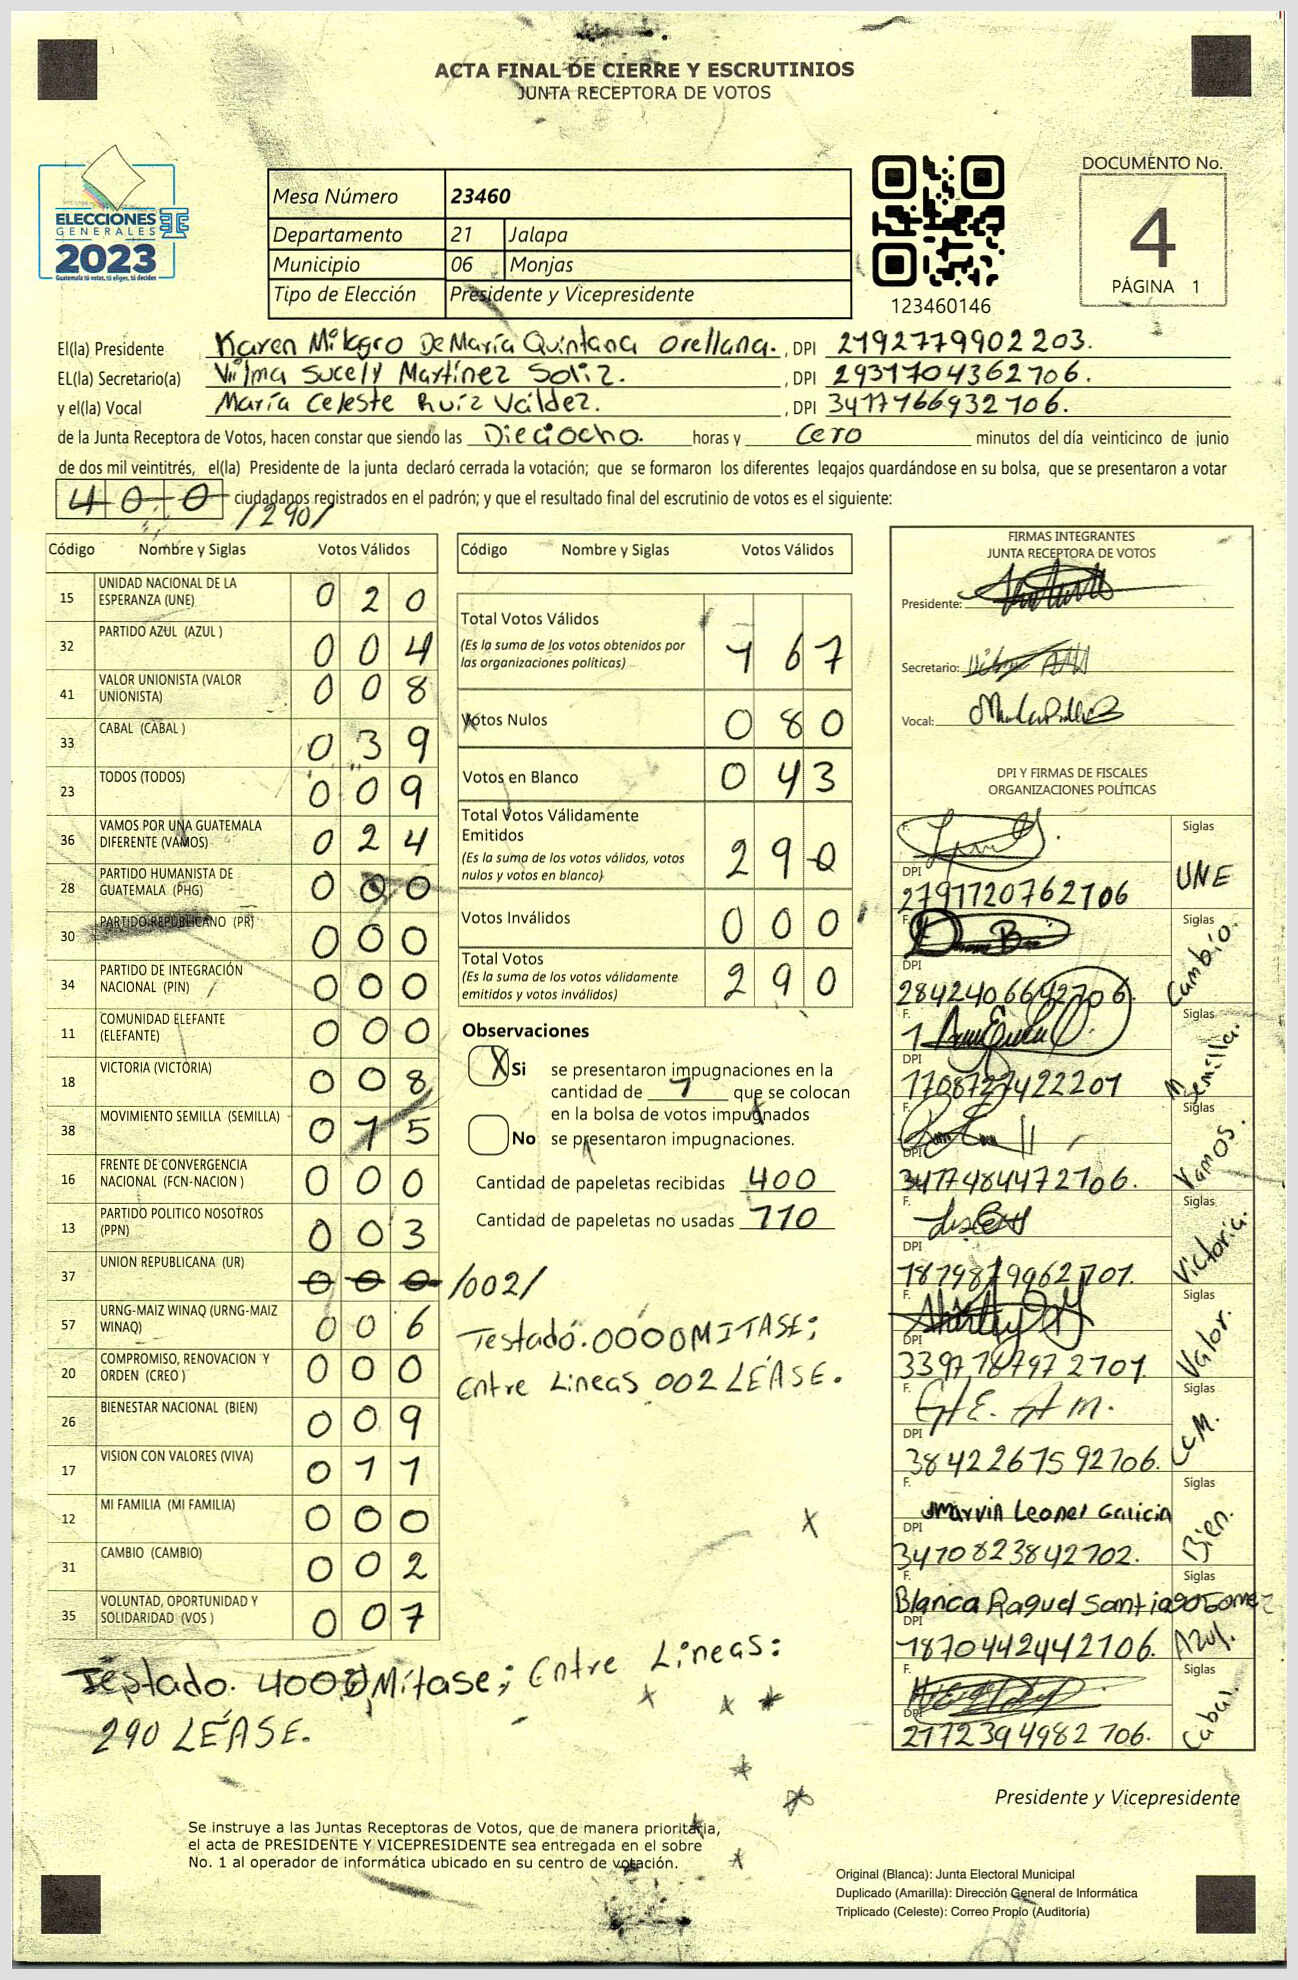 ACTA FINAL DE CIERRE Y ESCRUTINIOS
JUNTA RECEPTORA DE VOTOS
ELECCIONES
GENERALES
2023
Guatemala tú votas, tú eliges, tú decides
Mesa Número 23460
Departamento 21 Jalapa
Municipio 06 Monjas
Tipo de Elección Presidente y Vicepresidente
123460146
DOCUMENTO No.
4
PÁGINA 1
El(la) Presidente Karen Milagro DeMaría Quintana Orellana. , DPI 2192779902203.
EL(la) Secretario(a) Vilma Sucely Martínez Soliz. , DPI 2931704362706.
y el(la) Vocal María Celeste Ruíz Váldez. , DPI 3417766932706.
de la Junta Receptora de Votos, hacen constar que siendo las Dieciocho. horas y Cero minutos del día veinticinco de junio
de dos mil veintitrés, el(la) Presidente de la junta declaró cerrada la votación; que se formaron los diferentes legajos guardándose en su bolsa, que se presentaron a votar
400 ciudadanos registrados en el padrón; y que el resultado final del escrutinio de votos es el siguiente:
/290/
Código Nombre y Siglas Votos Válidos
15 UNIDAD NACIONAL DE LA ESPERANZA (UNE) 0 2 0
32 PARTIDO AZUL (AZUL ) 0 0 4
41 VALOR UNIONISTA (VALOR UNIONISTA) 0 0 8
33 CABAL (CABAL ) 0 3 9
23 TODOS (TODOS) 0 0 9
36 VAMOS POR UNA GUATEMALA DIFERENTE (VAMOS) 0 2 4
28 PARTIDO HUMANISTA DE GUATEMALA (PHG) 0 0 0
30 PARTIDO REPUBLICANO (PR) 0 0 0
34 PARTIDO DE INTEGRACIÓN NACIONAL (PIN) 0 0 0
11 COMUNIDAD ELEFANTE (ELEFANTE) 0 0 0
18 VICTORIA (VICTORIA) 0 0 8
38 MOVIMIENTO SEMILLA (SEMILLA) 0 1 5
16 FRENTE DE CONVERGENCIA NACIONAL (FCN-NACION ) 0 0 0
13 PARTIDO POLITICO NOSOTROS (PPN) 0 0 3
37 UNION REPUBLICANA (UR) 0 0 0 /002/
57 URNG-MAIZ WINAQ (URNG-MAIZ WINAQ) 0 0 6
20 COMPROMISO, RENOVACION Y ORDEN (CREO ) 0 0 0
26 BIENESTAR NACIONAL (BIEN) 0 0 9
17 VISION CON VALORES (VIVA) 0 1 1
12 MI FAMILIA (MI FAMILIA) 0 0 0
31 CAMBIO (CAMBIO) 0 0 2
35 VOLUNTAD, OPORTUNIDAD Y SOLIDARIDAD (VOS ) 0 0 7
Testado. 400 Mitase; Entre Lineas:
290 LÉASE.
Código Nombre y Siglas Votos Válidos
Total Votos Válidos
(Es la suma de los votos obtenidos por
las organizaciones políticas) 1 6 7
Votos Nulos 0 8 0
Votos en Blanco 0 4 3
Total Votos Válidamente
Emitidos
(Es la suma de los votos válidos, votos
nulos y votos en blanco) 2 9 0
Votos Inválidos 0 0 0
Total Votos
(Es la suma de los votos válidamente
emitidos y votos inválidos) 2 9 0
Observaciones
X Si se presentaron impugnaciones en la
cantidad de 1 que se colocan
en la bolsa de votos impugnados
No se presentaron impugnaciones.
Cantidad de papeletas recibidas 400
Cantidad de papeletas no usadas 110
Testadó. 0000MITASE;
Entre Lineas 002 LÉASE.
FIRMAS INTEGRANTES
JUNTA RECEPTORA DE VOTOS
Presidente:
Secretario:
Vocal:
DPI Y FIRMAS DE FISCALES
ORGANIZACIONES POLÍTICAS
F. Siglas
DPI UNE
2791720762106
F. Siglas
DPI Cambio.
2842406642706.
F. Siglas
DPI M Semilla.
1708727422201
F. Siglas
DPI Vamos.
3417484472706.
F. Siglas
DPI Victoria.
1879879962701.
F. Siglas
DPI Valor.
3397787972701.
F. Siglas
DPI
3842267592706.
F. Siglas
Marvin Leonel Galicia
DPI Bien.
3470823842702.
F. Siglas
Blanca Raquel Santiago Gomez
DPI Azul.
1870442442106.
F. Siglas
DPI Cabal.
2172394982706.
Presidente y Vicepresidente
Se instruye a las Juntas Receptoras de Votos, que de manera prioritaria,
el acta de PRESIDENTE Y VICEPRESIDENTE sea entregada en el sobre
No. 1 al operador de informática ubicado en su centro de votación.
Original (Blanca): Junta Electoral Municipal
Duplicado (Amarilla): Dirección General de Informática
Triplicado (Celeste): Correo Propio (Auditoría)